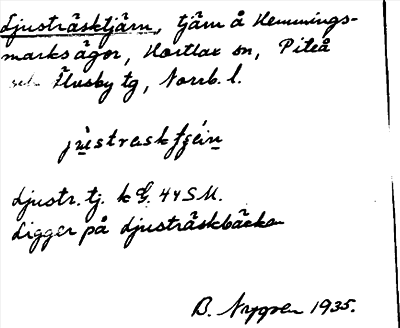 Ljusträsktjärn, tjärn å Hemmings-
marks ägor, Hortlax sn, Piteå
och Älvsby tg, Norrb. l.
Ljustr. tj. k G. 44 S.M.
Ligger på Ljusträskbäcken
B. Nygren 1935.